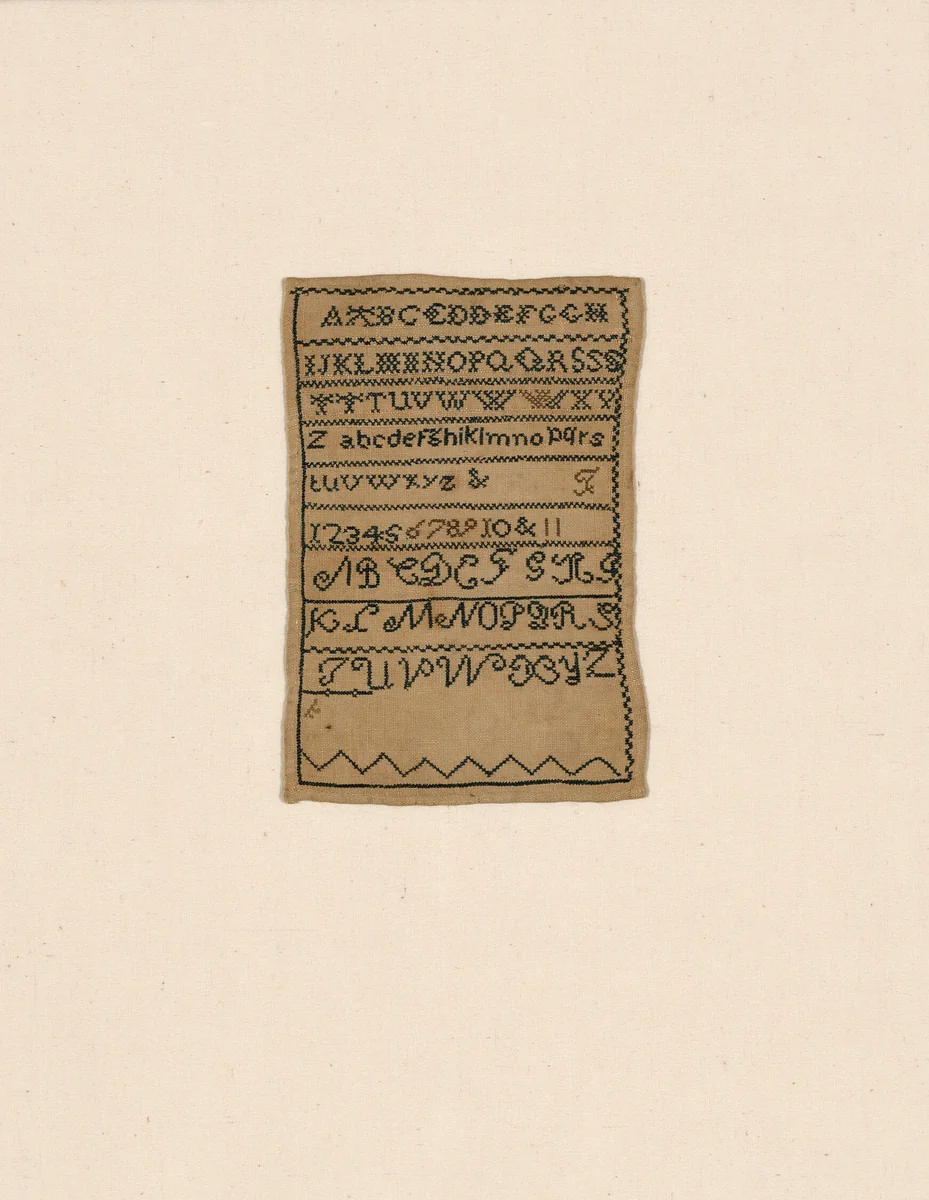 AABCCDDEFGGH
IJKLMNOPQQRSSS
TTTUVWWWXY
Z abcdefghiklmnopqrs
tuvwxyz & T
12345678910&11
ABCDEFGHI
KLMNOPQRS
TUVWXYZ